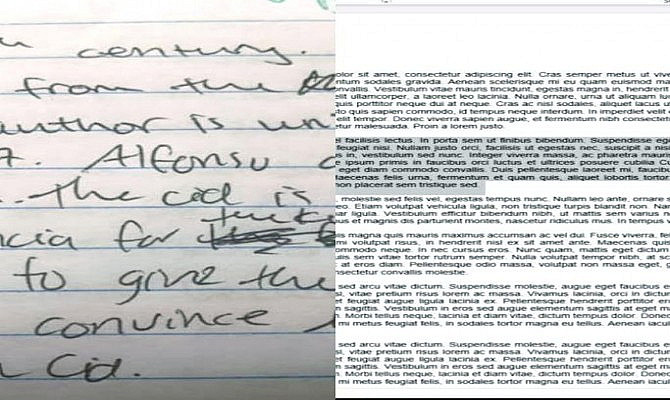 century.
from the
author is
7. Alfonso
The cid is
for
to give the
convince
Cid.
olor sit amet, consectetur adipiscing elit. Cras semper metus ut vive
ntum sodales gravida. Aenean scelerisque mi eu quam euismod ma
convallis. Vestibulum vitae mauris tincidunt, egestas magna in, hendrerit
elit ullamcorper, a laoreet leo lacinia. Nulla ornare, urna ut aliquam luc
quis porttitor neque dui at neque. Cras ac nisi sodales, aliquet lacus
o quis sapien commodo, id tempus neque interdum. In imperdiet velit
elit tempor. Donec viverra sapien augue, et fermentum nibh consectet
tur malesuada. Proin a lorem justo.
el facilisis lectus. In porta sem ut finibus bibendum. Suspendisse ege
feugiat nisi. Nullam justo orci, facilisis ut egestas nec, suscipit a nisi
us in, vestibulum sed nunc. Integer viverra massa, ac pharetra mauris
e ipsum primis in faucibus orci luctus et ultrices posuere cubilia Cu
eget diam commodo convallis. Duis pellentesque laoreet mi, faucibus
aecenas felis urna, fermentum et quam quis, aliquet lobortis tortor
non placerat sem tristique sed.
, molestie sed felis vel, egestas tempus nunc. Nullam leo ante, ornare s
eo. Etiam volutpat vehicula ligula, non tristique turpis blandit non. Nam
ar ligula. Vestibulum efficitur bibendum nibh, ut mattis sem varius
us et magnis dis parturient montes, nascetur ridiculus mus. In tempus v
is magna quis mauris maximus accumsan ac vel dui. Fusce viverra, fe
mi volutpat risus, in hendrerit nisl ex sit amet ante. Maecenas quis
ommodo neque. In nec cursus eros. Nunc quam, mattis eget dictum
ulis sem vitae tortor rutrum semper. Nulla volutpat tempor nibh, at sc
at eros diam. Pellentesque odio massa, volutpat non massa eget,
nsectetur convallis molestie.
sed arcu vitae dictum. Suspendisse molestie, augue eget faucibus e
si, vitae pretium risus lorem ac massa. Vivamus lacus, orci in dictum
et feugiat augue ligula lacinia ex. Pellentesque hendrerit porttitor ero
n sagittis. Vestibulum in eros sed augue elementum sagittis at eget ma
h. Morbi tellus neque, lacinia et diam vitae, dictum tempus dolor. Donec
mi metus feugiat felis, in sodales tortor magna eu tellus. Aenean iacul
sed arcu vitae dictum. Suspendisse molestie, augue eget faucibus e
si, vitae pretium risus lorem ac massa. Vivamus lacus, orci in dictum
et feugiat augue ligula lacinia ex. Pellentesque hendrerit porttitor er
n sagittis. Vestibulum in eros sed augue elementum sagittis at eget ma
h. Morbi tellus neque, lacinia et diam vitae, dictum tempus dolor. Donec
mi metus feugiat felis, in sodales tortor magna eu tellus. Aenean iacul